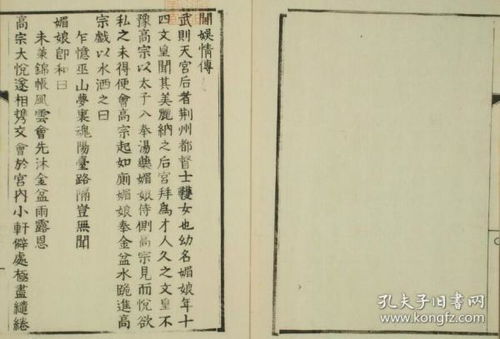 閫娛情傳
武則天宮后者荆州都督士彠女也幼名媚娘年十
四文皇聞其美麗納之后宮拜為才人久之文皇不
豫高宗以太子入奉湯藥媚娘侍側高宗見而悅欲
私之未得便會高宗起如廁媚娘奉金盆水跪進高
宗戲以水洒之曰
乍憶巫山夢裏魂陽臺路隔豈無聞
媚娘即和曰
未承錦帳風雲會先沐金盆雨露恩
高宗大悅遂相携交會於宮內小軒僻處極盡繾綣
孔夫子旧书网
www.kongfz.com